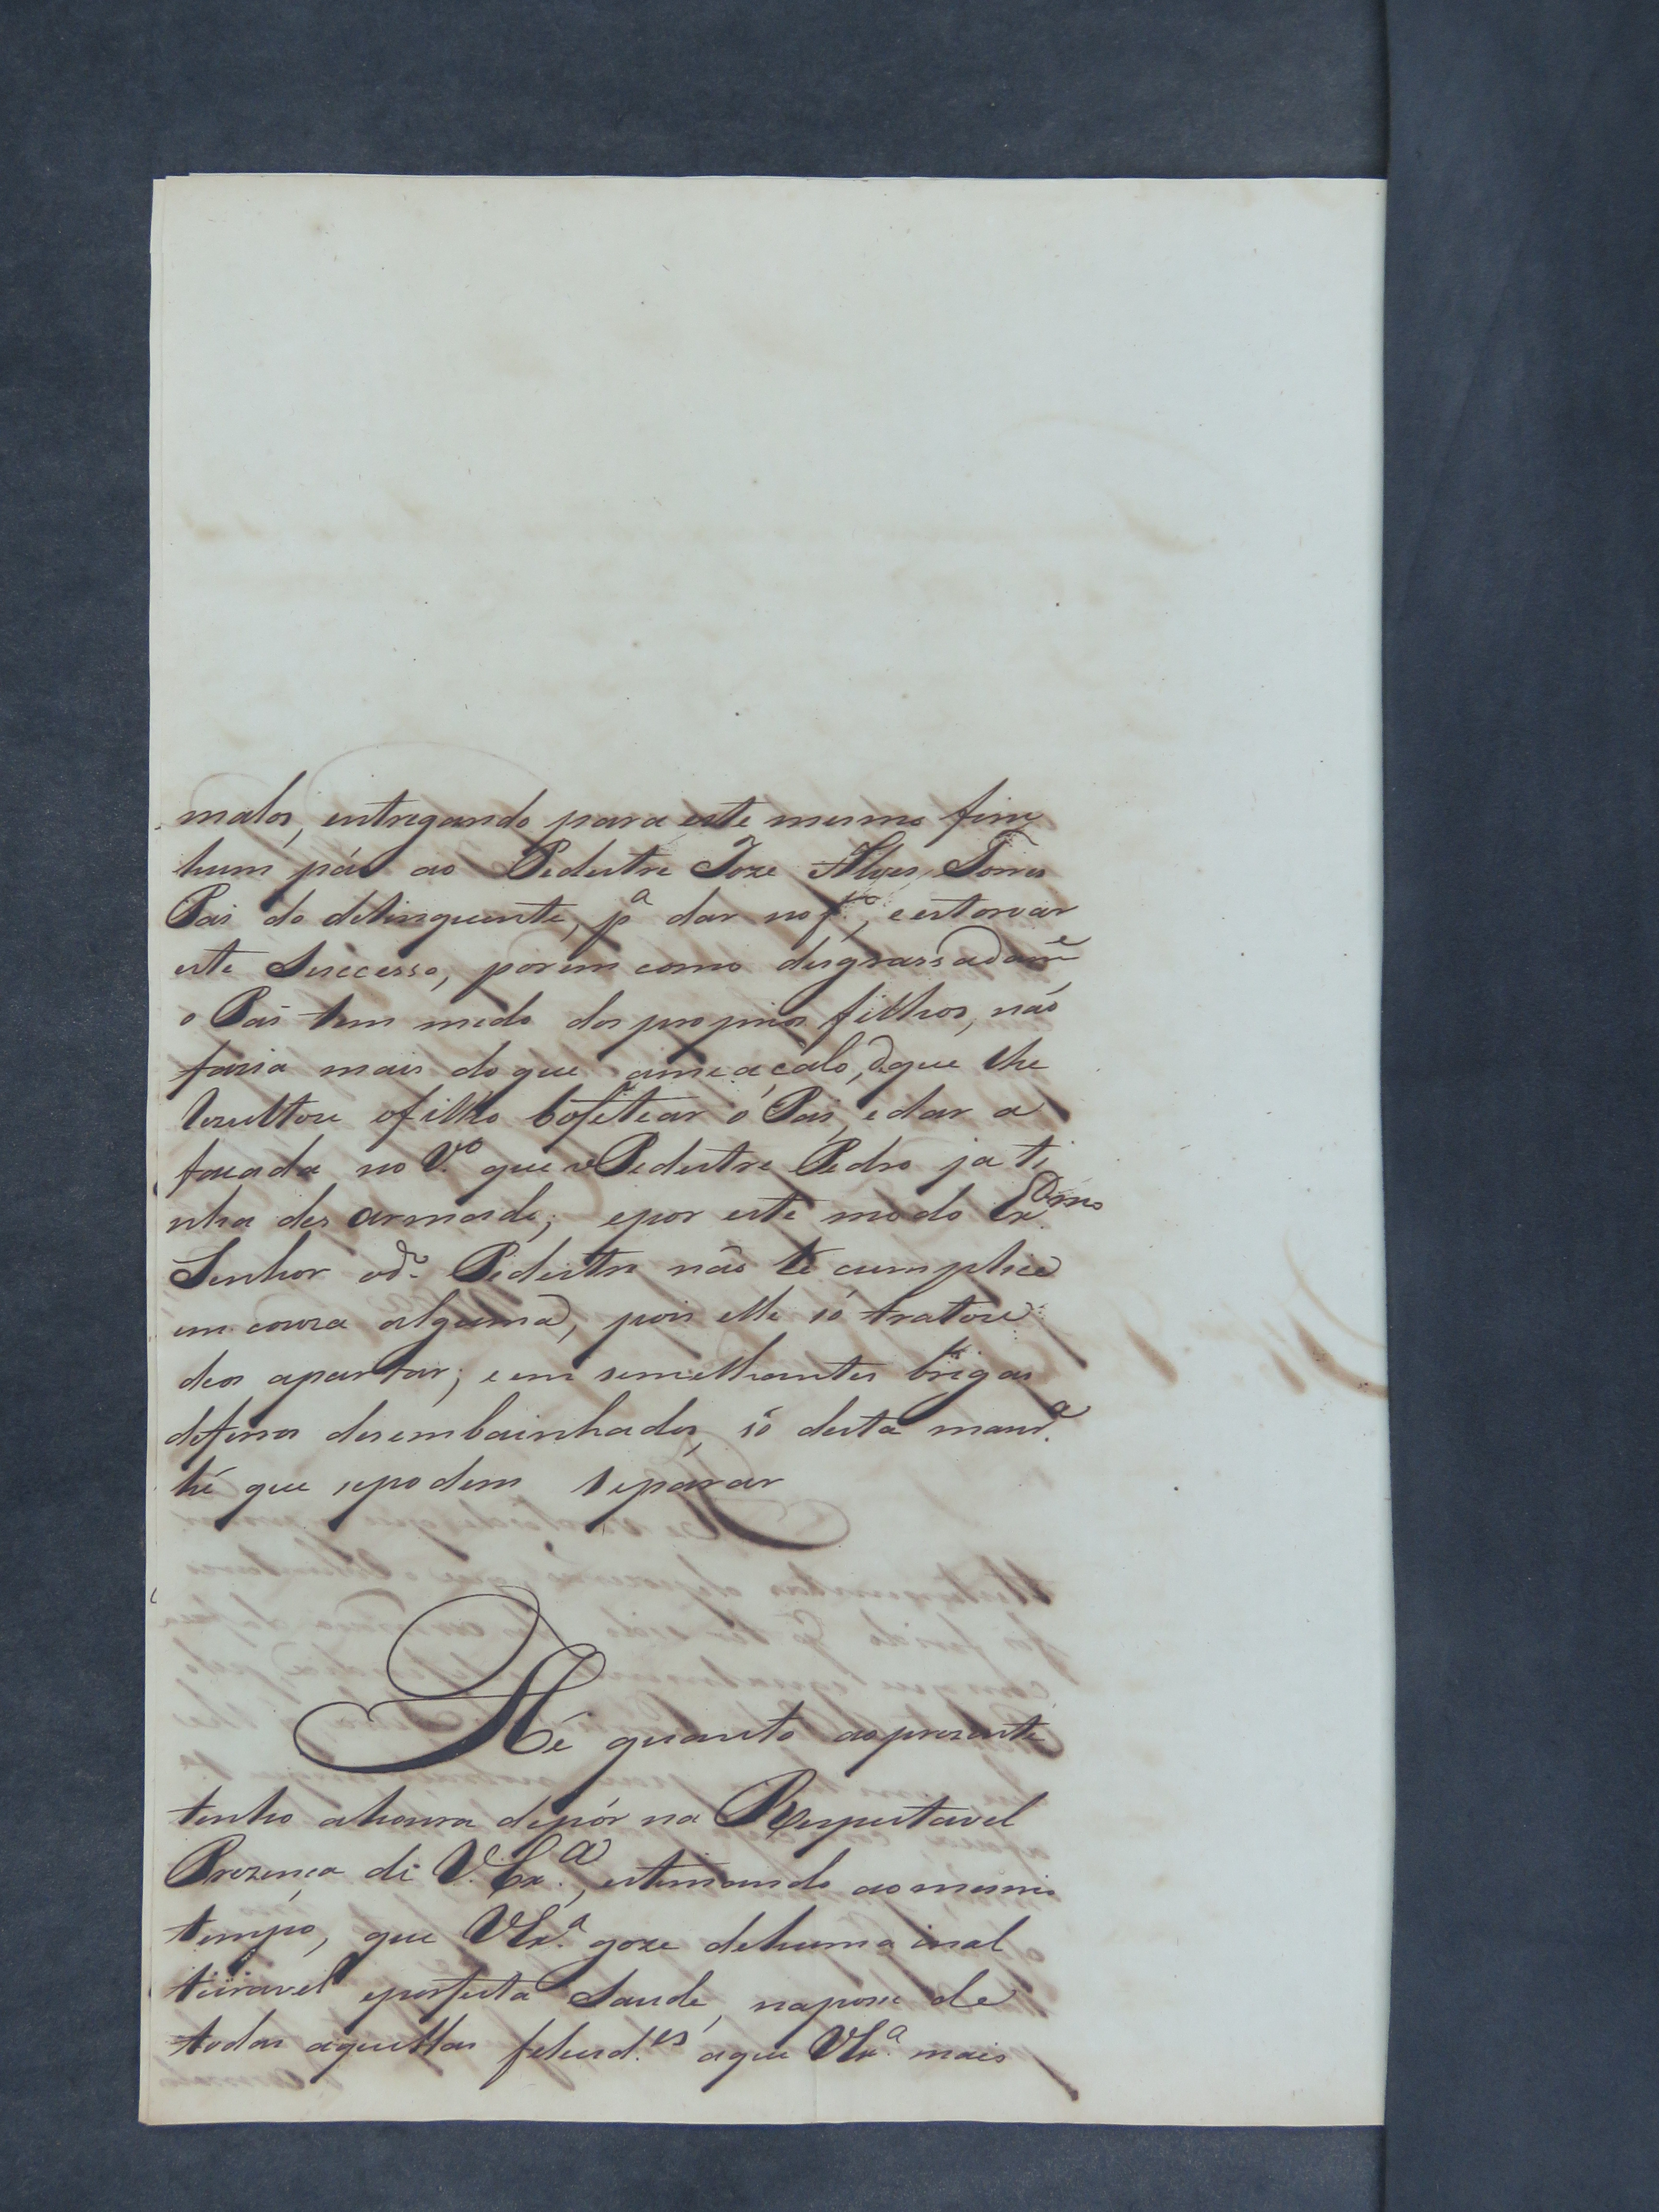 malos, entregando para este mesmo fim
hum páo ao Pedestre Joze Alves Torres
Pai do delinquente, p.ª dar no f.º, e estorvar
este Successo, porem como desgrassadam.e
o Pai tem medo dos proprios filhos, não
faria mais do que ameaçalo, do que lhe
rezultou o filho bofetear o Pai, e dar a
facada no V.º que o Pedestre Pedro ja ti
nha des armado; e por este modo Ex.mo
Senhor o d.º Pedestre não hé cumplice
em couza alguma, pois elle só tratou
de os apartar; e em semelhantes brigas
de ferros desembainhados, só desta man.ra
hé que se podem separar
Hé quanto ao prezente
tenho a honra de pôr na Respeitavel
Prezença de V. Ex.ª, estimando ao mesmo
tempo, que V Ex.ª goze de huma inal
teravel e perfeita Saude, na posse de
todas aquellas felicid.es a que V Ex.ª mais